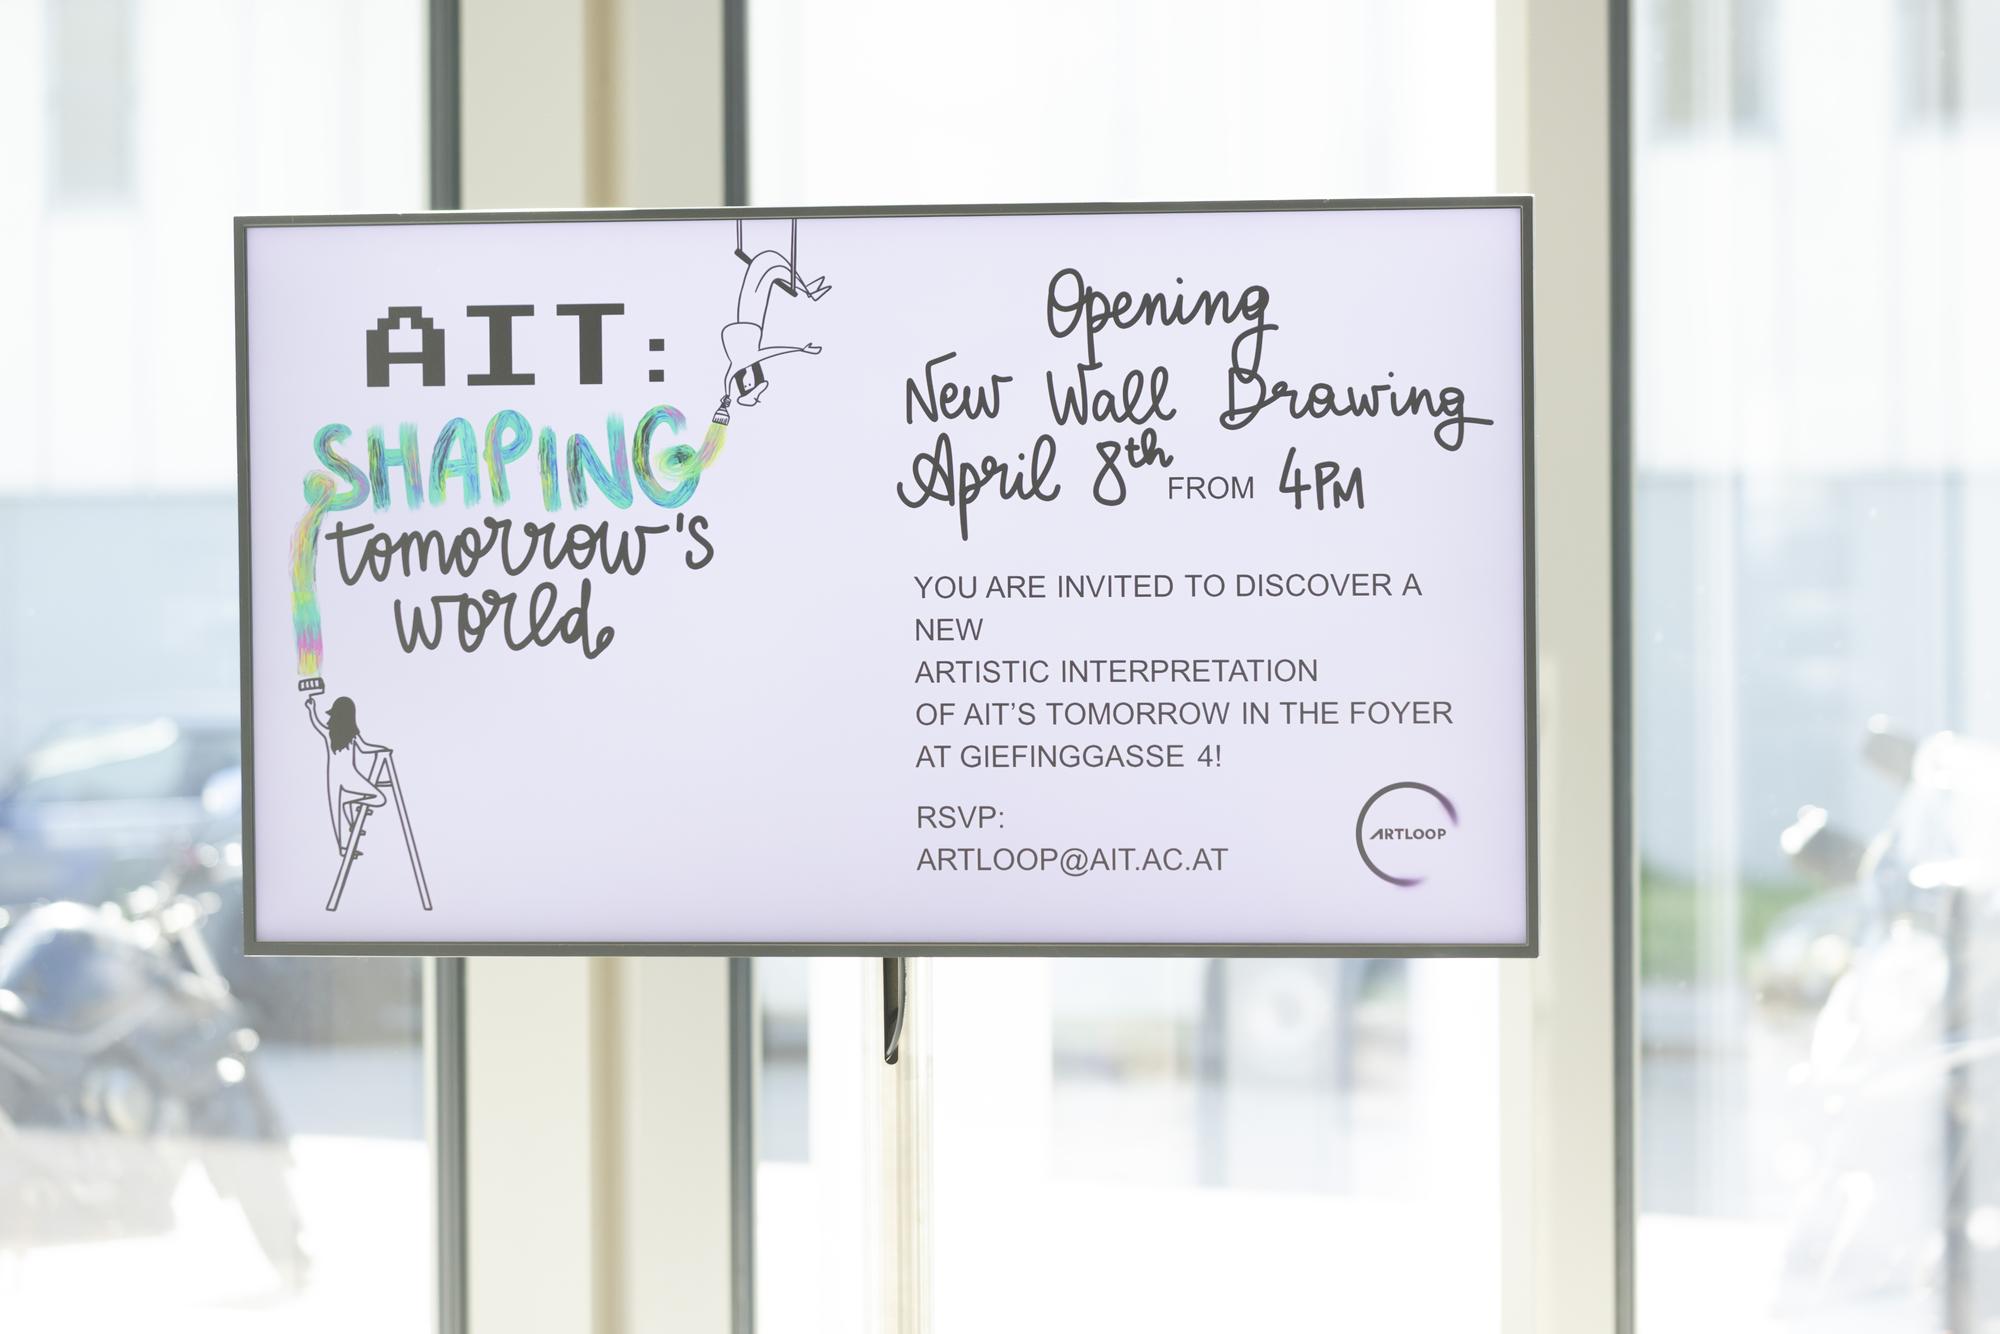 AIT:
SHAPING
tomorrow's
world
Opening
New Wall Drawing
April 8th FROM 4PM
YOU ARE INVITED TO DISCOVER A
NEW
ARTISTIC INTERPRETATION
OF AIT’S TOMORROW IN THE FOYER
AT GIEFINGGASSE 4!
RSVP:
ARTLOOP@AIT.AC.AT
ARTLOOP